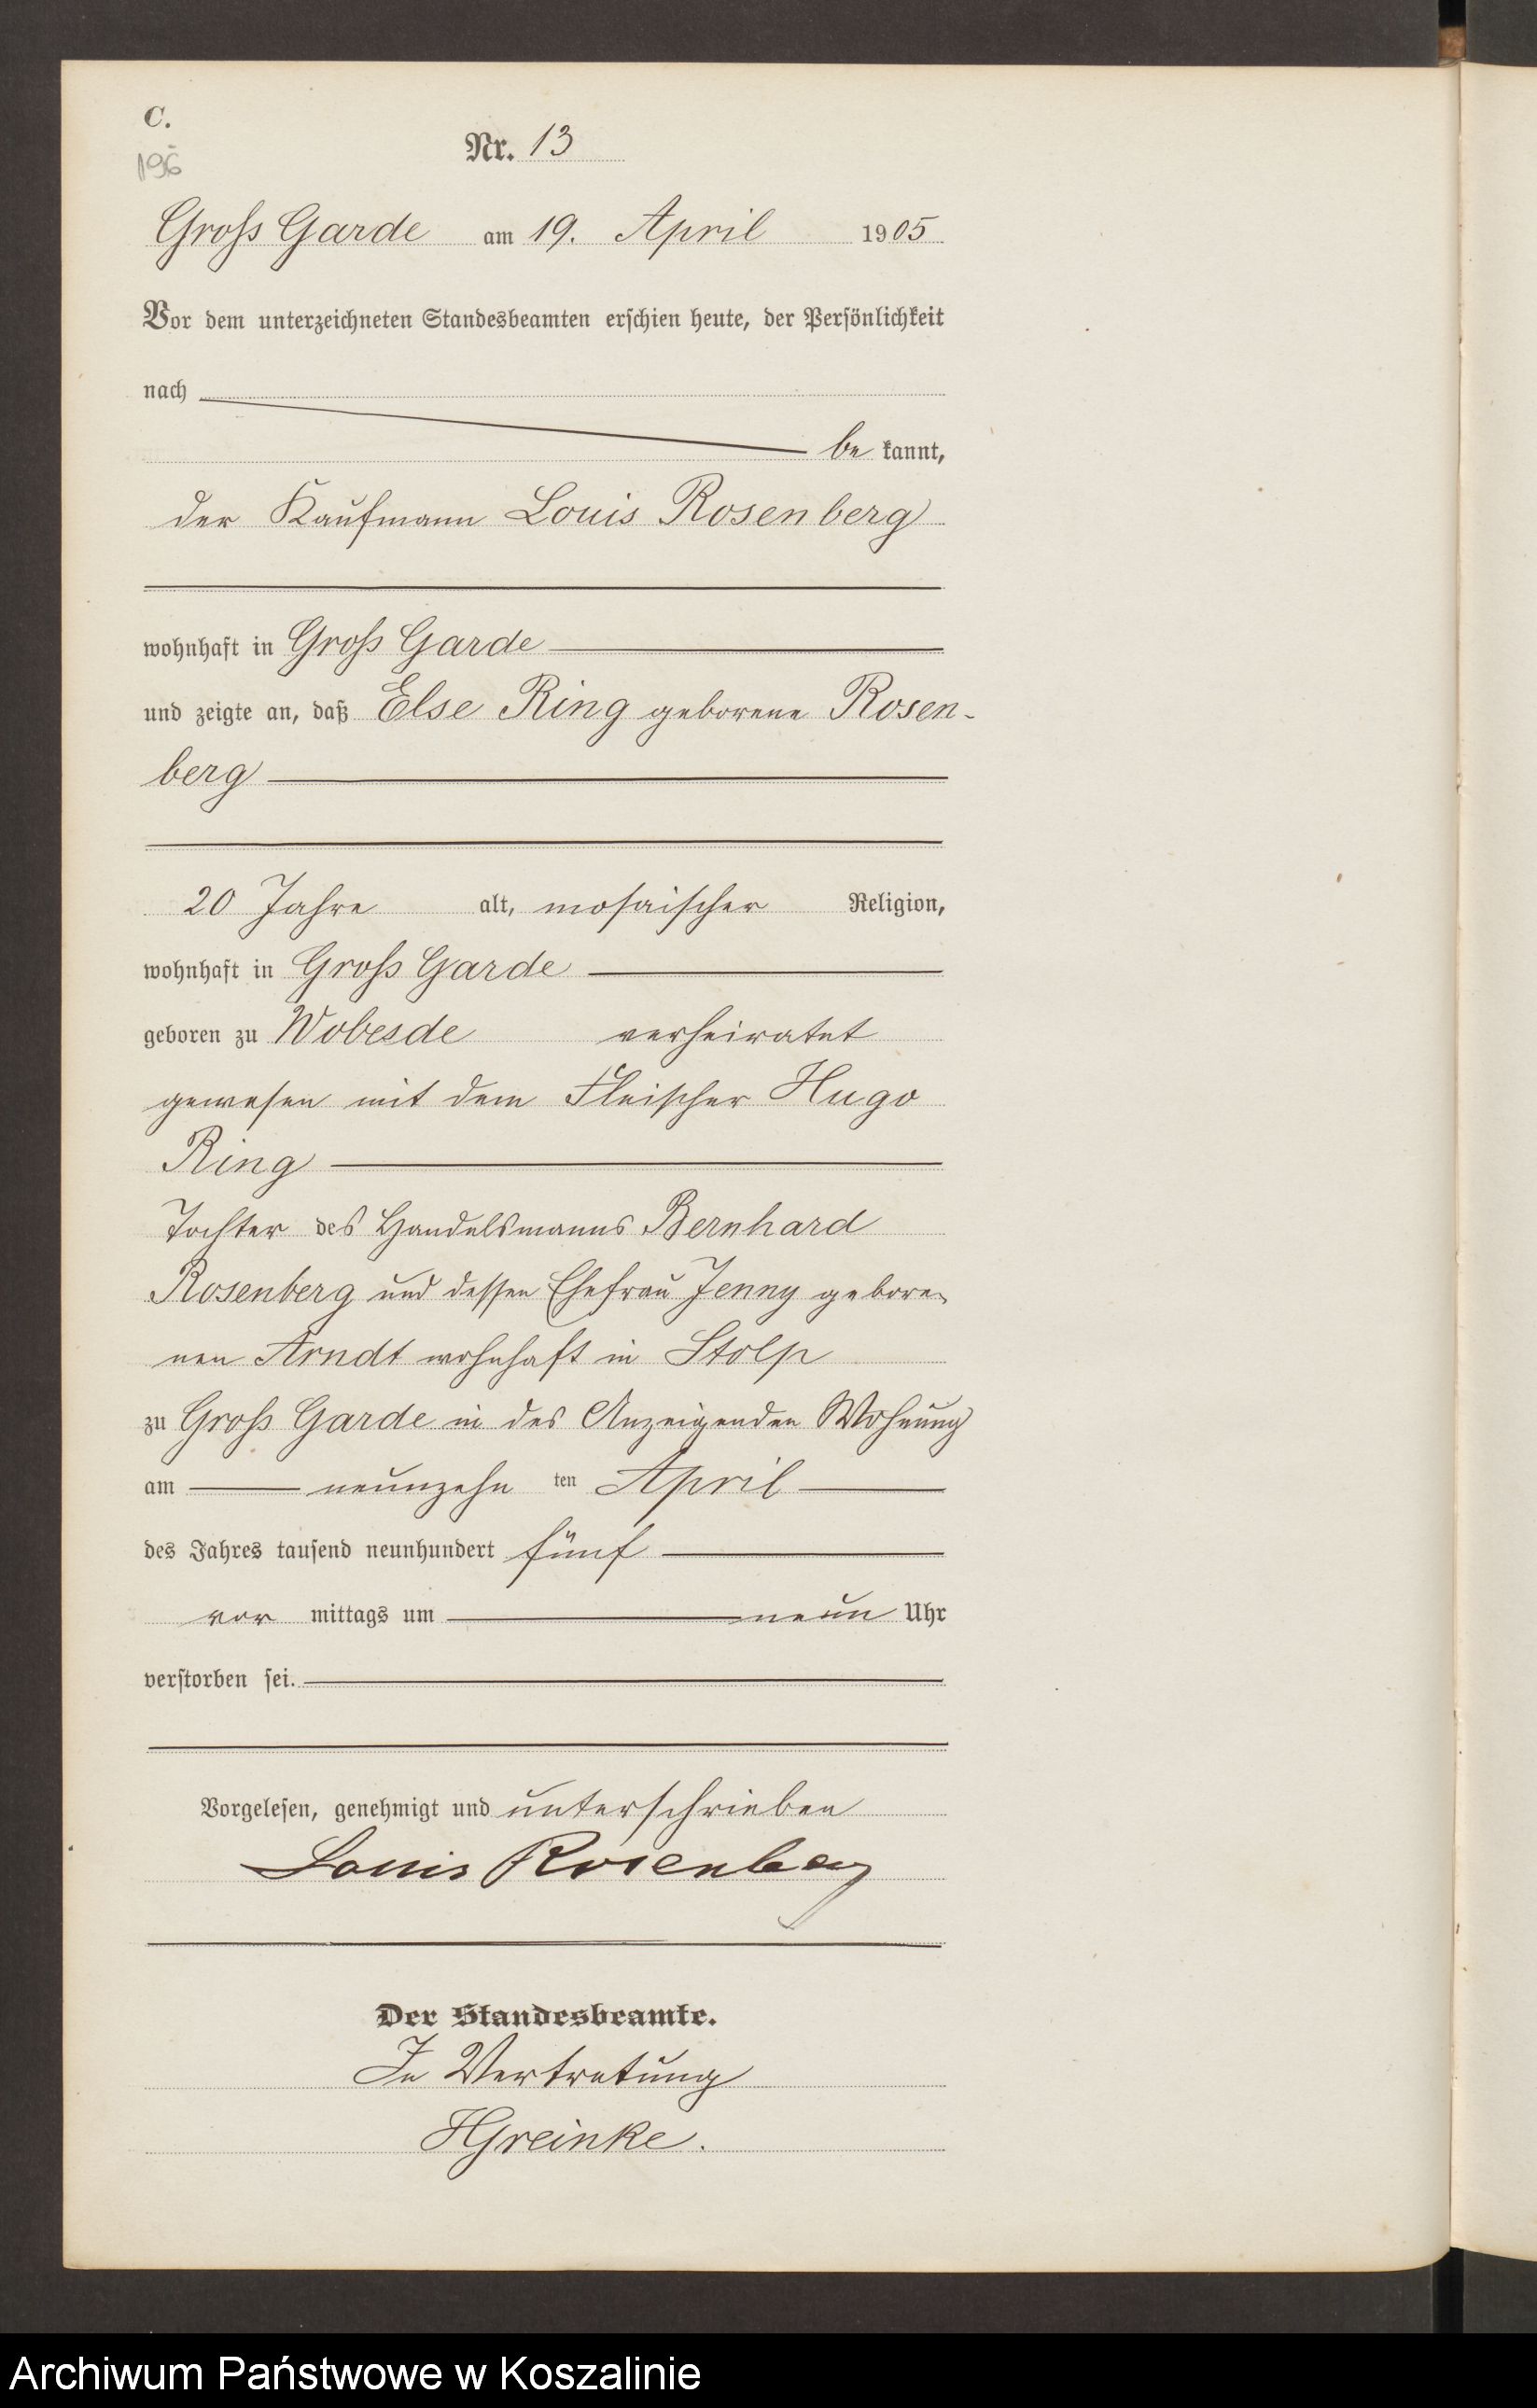 C.
196
Nr. 13
Gross Garde am 19. April 1905
Vor dem unterzeichneten Standesbeamten erschien heute, der Persönlichkeit
nach
be kannt,
der Kaufmann Louis Rosenberg
wohnhaft in Gross Garde
und zeigte an, daß Else Ring geborene Rosen-
berg
20 Jahre alt, mosaischer Religion,
wohnhaft in Gross Garde
geboren zu Wobesde verheiratet
gewesen mit dem Fleischer Hugo
Ring
Tochter des Handelsmanns Bernhard
Rosenberg und dessen Ehefrau Jenny gebore-
nen Arndt wohnhaft in Stolp
zu Gross Garde in des Anzeigenden Wohnung
am neunzehn ten April
des Jahres tausend neunhundert fünf
vor mittags um neun Uhr
verstorben sei.
Vorgelesen, genehmigt und unterschrieben
Louis Rosenberg
Der Standesbeamte.
In Vertretung
HGreinke.
Archiwum Państwowe w Koszalinie